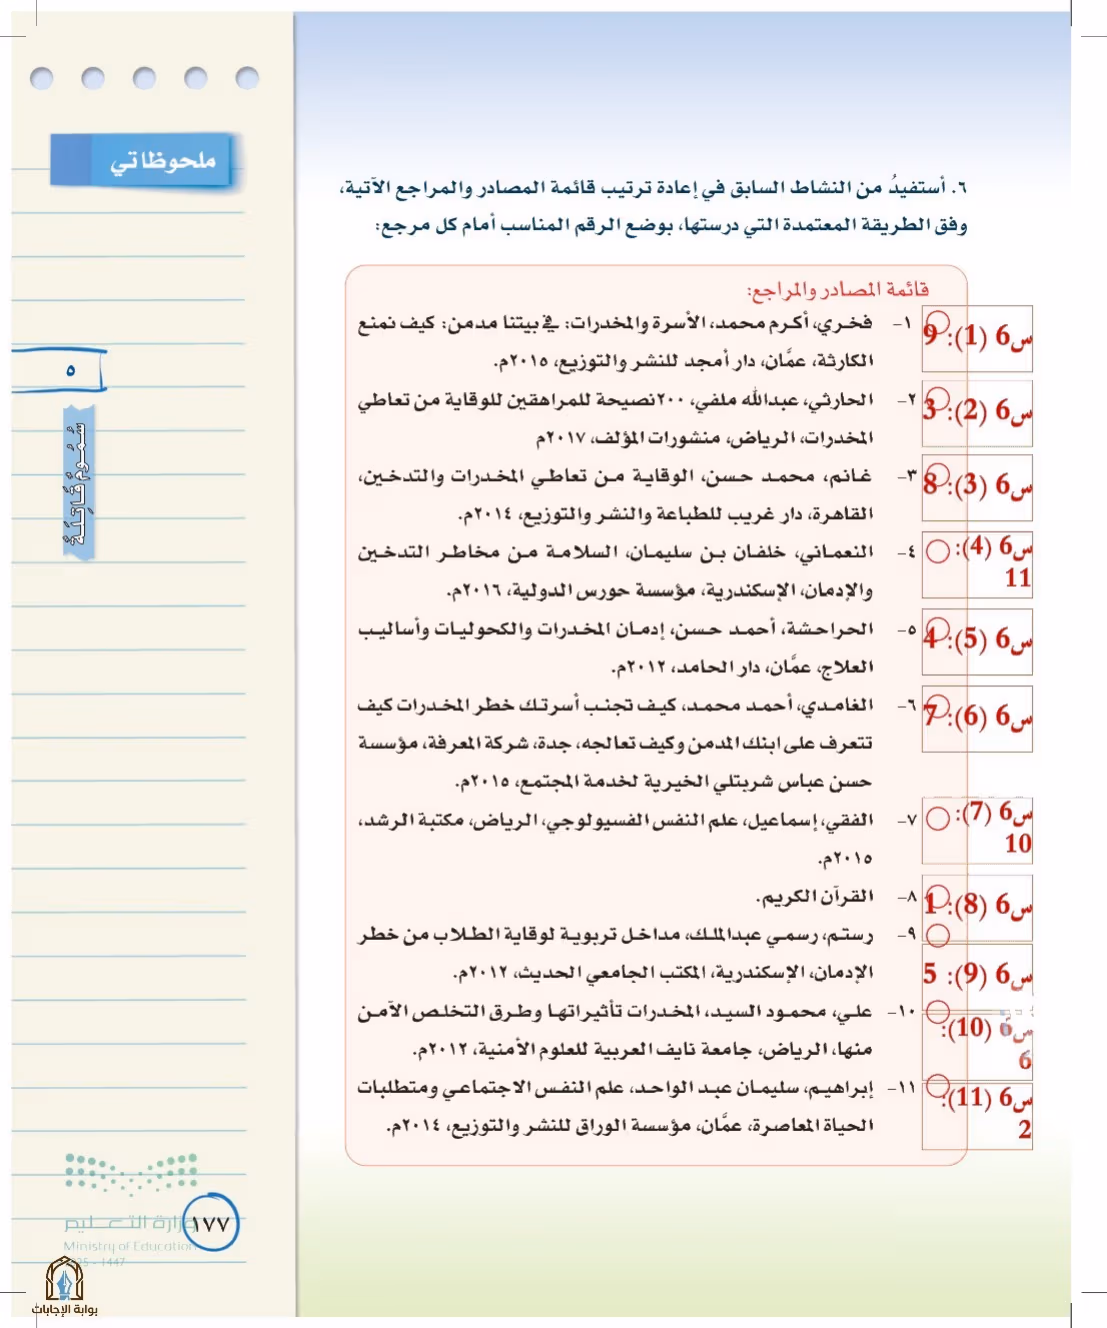 ملحوظاتي
٦. أستفيدُ من النشاط السابق في إعادة ترتيب قائمة المصادر والمراجع الآتية،
وفق الطريقة المعتمدة التي درستها، بوضع الرقم المناسب أمام كل مرجع:
قائمة المصادر والمراجع:
س6 (1): 9
١- فخري، أكرم محمد، الأسرة والمخدرات: في بيتنا مدمن: كيف نمنع
الكارثة، عمَّان، دار أمجد للنشر والتوزيع، ٢٠١٥م.
س6 (2): 3
٢- الحارثي، عبدالله ملفي، ٢٠٠نصيحة للمراهقين للوقاية من تعاطي
المخدرات، الرياض، منشورات المؤلف، ٢٠١٧م
س6 (3): 8
٣- غانم، محمد حسن، الوقاية من تعاطي المخدرات والتدخين،
القاهرة، دار غريب للطباعة والنشر والتوزيع، ٢٠١٤م.
س6 (4):
11
٤- النعماني، خلفان بن سليمان، السلامة من مخاطر التدخين
والإدمان، الإسكندرية، مؤسسة حورس الدولية، ٢٠١٦م.
س6 (5): 4
٥- الحراحشة، أحمد حسن، إدمان المخدرات والكحوليات وأساليب
العلاج، عمَّان، دار الحامد، ٢٠١٢م.
س6 (6): 7
٦- الغامدي، أحمد محمد، كيف تجنب أسرتك خطر المخدرات كيف
تتعرف على ابنك المدمن وكيف تعالجه، جدة، شركة المعرفة، مؤسسة
حسن عباس شربتلي الخيرية لخدمة المجتمع، ٢٠١٥م.
س6 (7):
10
٧- الفقي، إسماعيل، علم النفس الفسيولوجي، الرياض، مكتبة الرشد،
٢٠١٥م.
س6 (8): 1
٨- القرآن الكريم.
س6 (9): 5
٩- رستم، رسمي عبدالملك، مداخل تربوية لوقاية الطلاب من خطر
الإدمان، الإسكندرية، المكتب الجامعي الحديث، ٢٠١٢م.
س6 (10):
6
١٠- علي، محمود السيد، المخدرات تأثيراتها وطرق التخلص الآمن
منها، الرياض، جامعة نايف العربية للعلوم الأمنية، ٢٠١٢م.
س6 (11):
2
١١- إبراهيم، سليمان عبد الواحد، علم النفس الاجتماعي ومتطلبات
الحياة المعاصرة، عمَّان، مؤسسة الوراق للنشر والتوزيع، ٢٠١٤م.
٥
سُمُومٌ قَاتِلَةٌ
وزارة التعليم
Ministry of Education
2025 - 1447
١٧٧
بوابة الإجابات